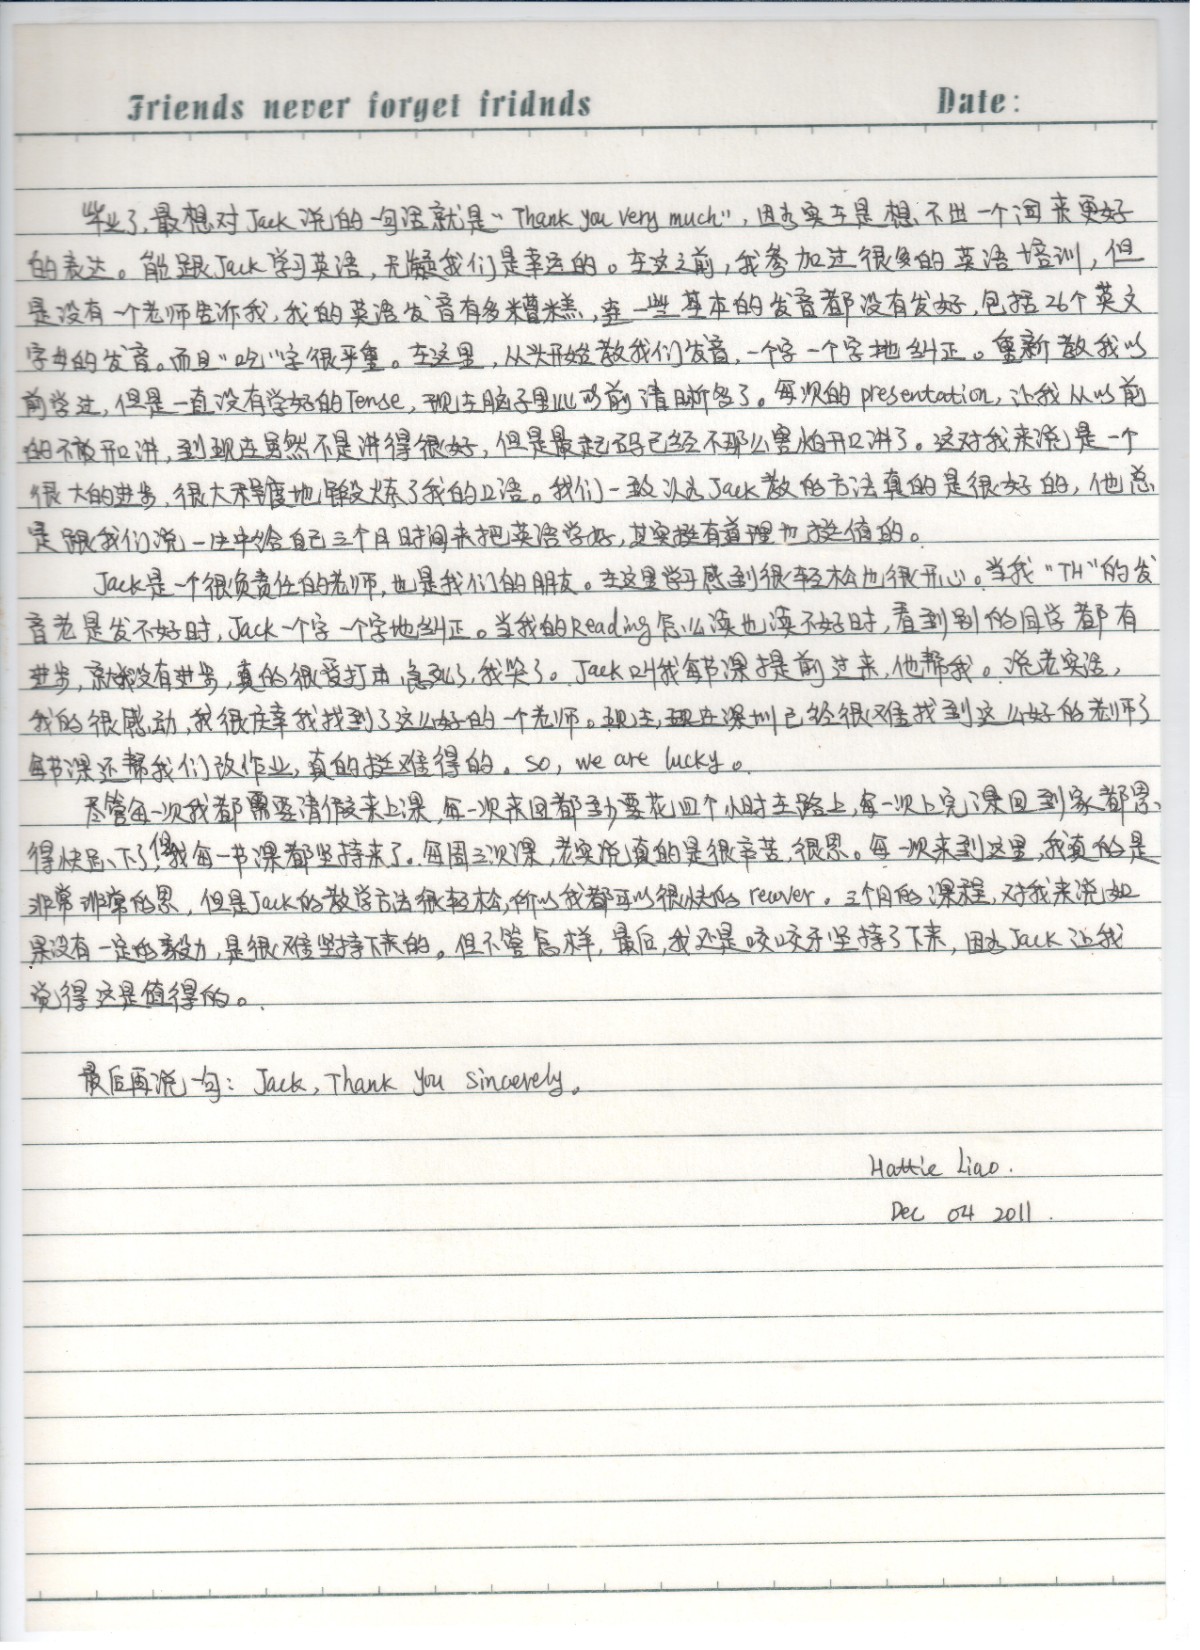 Friends never forget fridnds
Date:
毕业了,最想对Jack说的一句话就是“Thank you very much”,因为实在是想不出一个词来更好
的表达。能跟Jack学习英语,无疑我们是幸运的。在这之前,我参加过很多的英语培训,但
是没有一个老师告诉我,我的英语发音有多糟糕,连一些基本的发音都没有发好,包括26个英文
字母的发音。而且“吃”字很严重。在这里,从头开始教我们发音,一个字一个字地纠正。重新教我以
前学过,但是一直没有学好的Tense,现在脑子里比以前清晰多了。每次的presentation,让我从以前
的不敢开口讲,到现在虽然不是讲得很好,但是最起码已经不那么害怕开口讲了。这对我来说是一个
很大的进步,很大程度地锻炼了我的口语。我们一致认为Jack教的方法真的是很好的,他总
是跟我们说一生中给自己三个月时间来把英语学好,其实挺有道理也挺值的。
Jack是一个很负责任的老师,也是我们的朋友。在这里学习感到很轻松也很开心。当我“TH”的发
音老是发不好时,Jack一个字一个字地纠正。当我的Reading怎么读也读不好时,看到别的同学都有
进步,就我没有进步,真的很受打击,急死了,我哭了。Jack叫我每节课提前过来,他帮我。说老实话,
我的很感动,我很庆幸我找到了这么好的一个老师。现在,现在深圳已经很难找到这么好的老师了
每节课还帮我们改作业,真的挺难得的。so, we are lucky。
尽管每一次我都需要请假来上课,每一次来回都要花四个小时在路上,每一次上完课回到家都累
得快趴下了,但我每一节课都坚持来了。每周三次课,老实说真的是很辛苦,很累。每一次来到这里,我真的是
非常非常的累,但是Jack的教学方法很轻松,所以我都可以很快的recover。三个月的课程,对我来说如
果没有一定的毅力,是很难坚持下来的。但不管怎样,最后,我还是咬咬牙坚持了下来,因为Jack让我
觉得这是值得的。
最后再说一句:Jack, Thank you sincerely。
Hattie Liao.
Dec 04 2011.